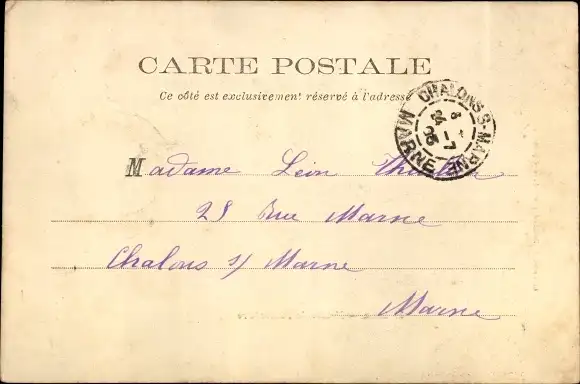 CARTE POSTALE
Ce côté est exclusivement réservé à l'adresse
CHALONS S-MARNE
MARNE
Madame Léon
25 Rue Marne
Chalons s/ Marne
Marne